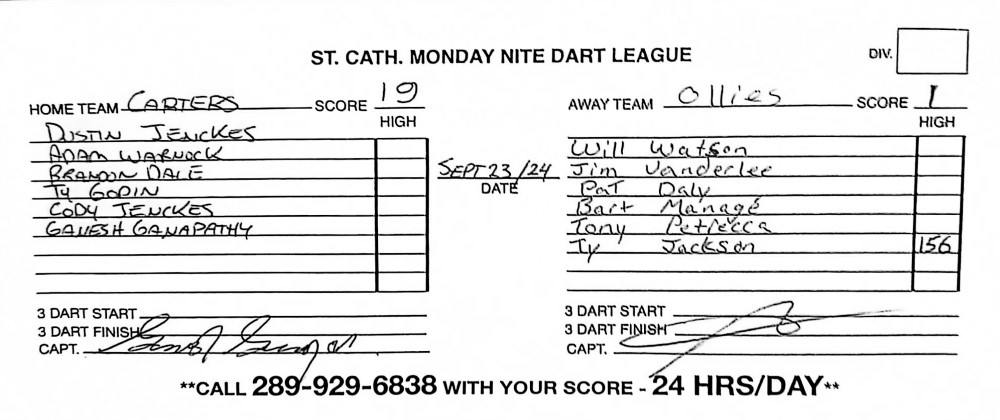 ST. CATH. MONDAY NITE DART LEAGUE
DIV.
HOME TEAM CARTERS SCORE 19
HIGH
DUSTIN JENCKES
ADAM WARNOCK
BRANDON DALE
TY GODIN
CODY JENCKES
GANESH GANAPATHY
3 DART START
3 DART FINISH
CAPT.
SEPT 23/24
DATE
AWAY TEAM Ollies SCORE 1
HIGH
Will Watson
Jim Vanderlee
Pat Daly
Bart Managé
Tony Petrecca
Ty Jackson 156
3 DART START
3 DART FINISH
CAPT.
**CALL 289-929-6838 WITH YOUR SCORE - 24 HRS/DAY**